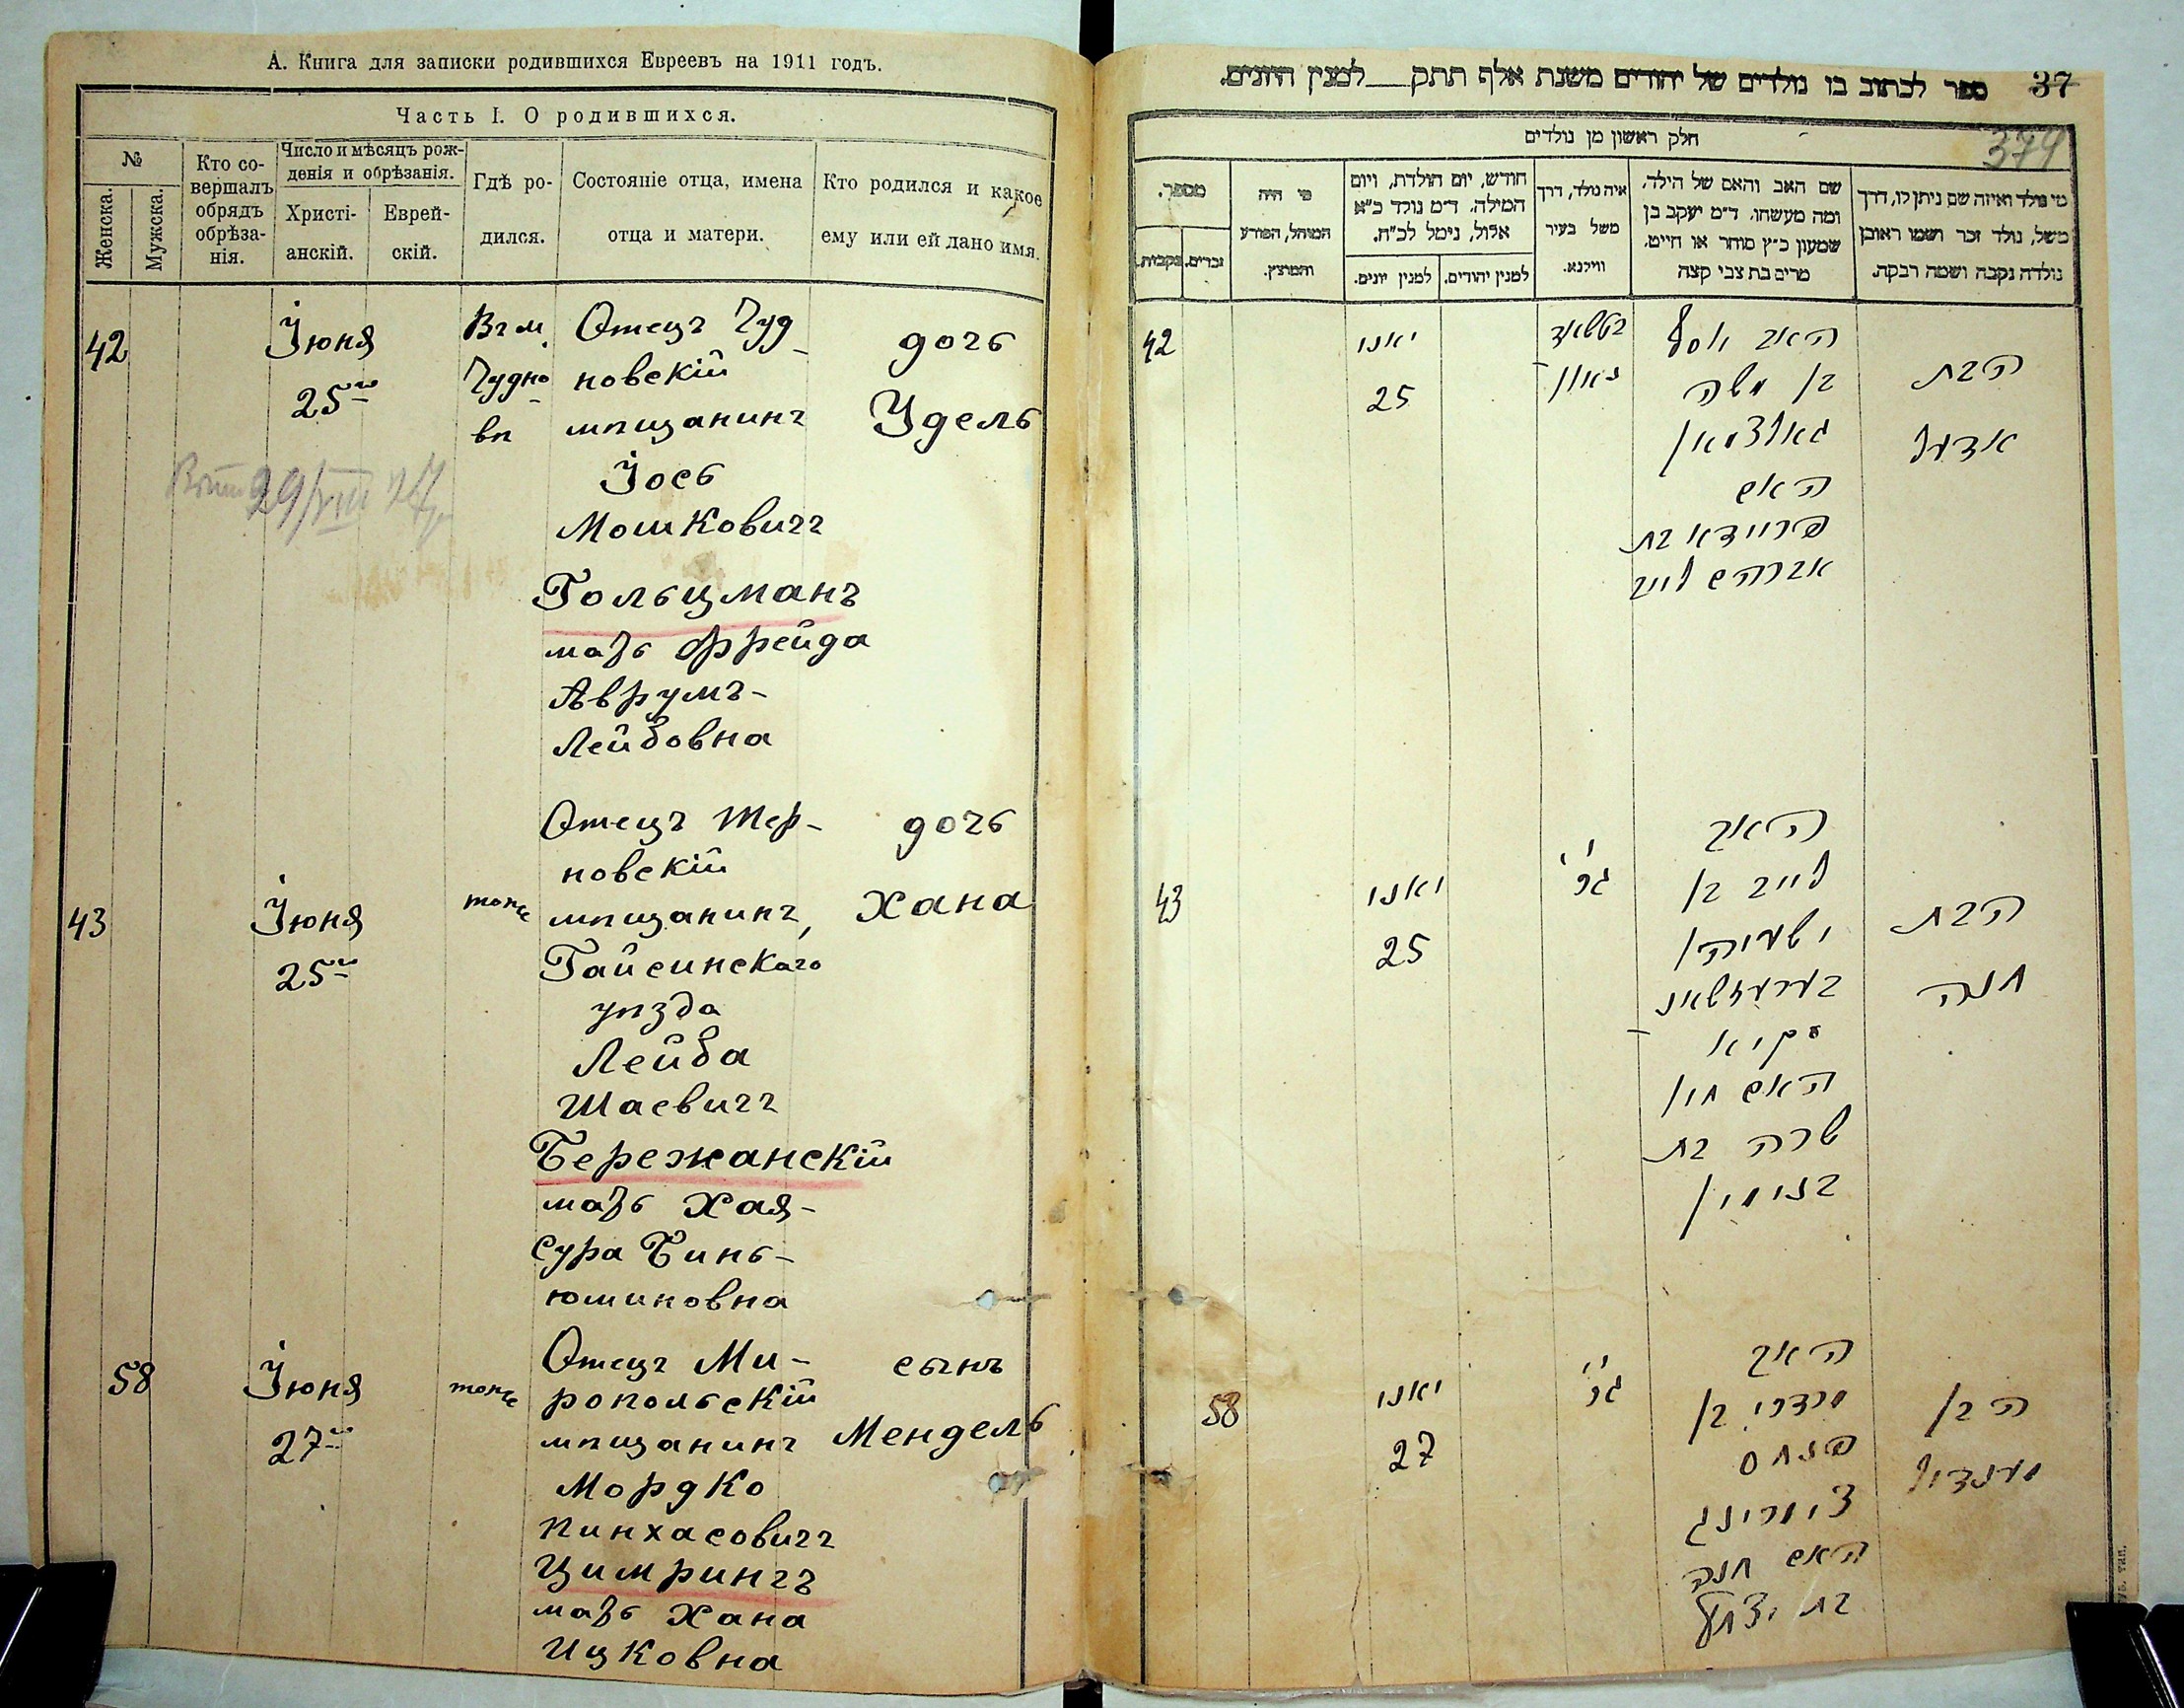 А. Книга для записки родившихся Евреевъ на 1911 годъ.
Часть I. О родившихся.
№
Женска.
Мужска.
Кто со-
вершалъ
обрядъ
обрѣза-
нія.
Число и мѣсяцъ рож-
денія и обрѣзанія.
Христі-
анскій.
Еврей-
скій.
Гдѣ ро-
дился.
Состояніе отца, имена
отца и матери.
Кто родился и какое
ему или ей дано имя.
42
Іюня
25го
Въ м.
Чудно-
вѣ
Отецъ Чуд-
новскій
мѣщанинъ
Іось
Мошковичъ
Гольцманъ
мать Фрейда
Аврумъ-
Лейбовна
дочь
Удель
29/VIII
43
Іюня
25го
тоже
Отецъ Тер-
новскій
мѣщанинъ,
Гайсинскаго
уѣзда
Лейба
Шаевичъ
Бережанскій
мать Хая-
Сура Бинь-
юминовна
дочь
Хана
58
Іюня
27го
тоже
Отецъ Ми-
ропольскій
мѣщанинъ
Мордко
Пинхасовичъ
Цимрингъ
мать Хана
Ицковна
сынъ
Мендель
37
374
ספר לכתוב בו נולדים של יהודים משנת אלף תתק למנין היונים.
חלק ראשון מן נולדים
מי נולד ואיזה שם ניתן לו, דרך
משל, נולד זכר ושמו ראובן
נולדה נקבה ושמה רבקה.
שם האב והאם של הילד,
ומה מעשהו. ד״מ יעקב בן
שמעון כ״ץ סוחר או חייט,
מרים בת צבי קצה
איה נולד, דרך
משל בעיר
ווילנא.
חודש, יום הולדת, ויום
המילה. ד״מ נולד כ״א
אלול, נימל לכ״ח.
למנין יהודים.
למנין יונים.
מי היה
המוהל, הפורע
והמוצץ.
מספר.
זכרים.
נקבות.
42
יאני
25
האב יוסף
בן משה
גאלצמאן
האם
פריידא בת
אברהם לייב
הבת
אדעל
43
יאני
25
האב
לייב בן
ישעיה
האם חי׳
שרה בת
בנימין
הבת
חנה
58
יאני
27
האב
מרדכי בן
פנחס
צימרינג
האם חנה
בת יצחק
הבן
מענדיל